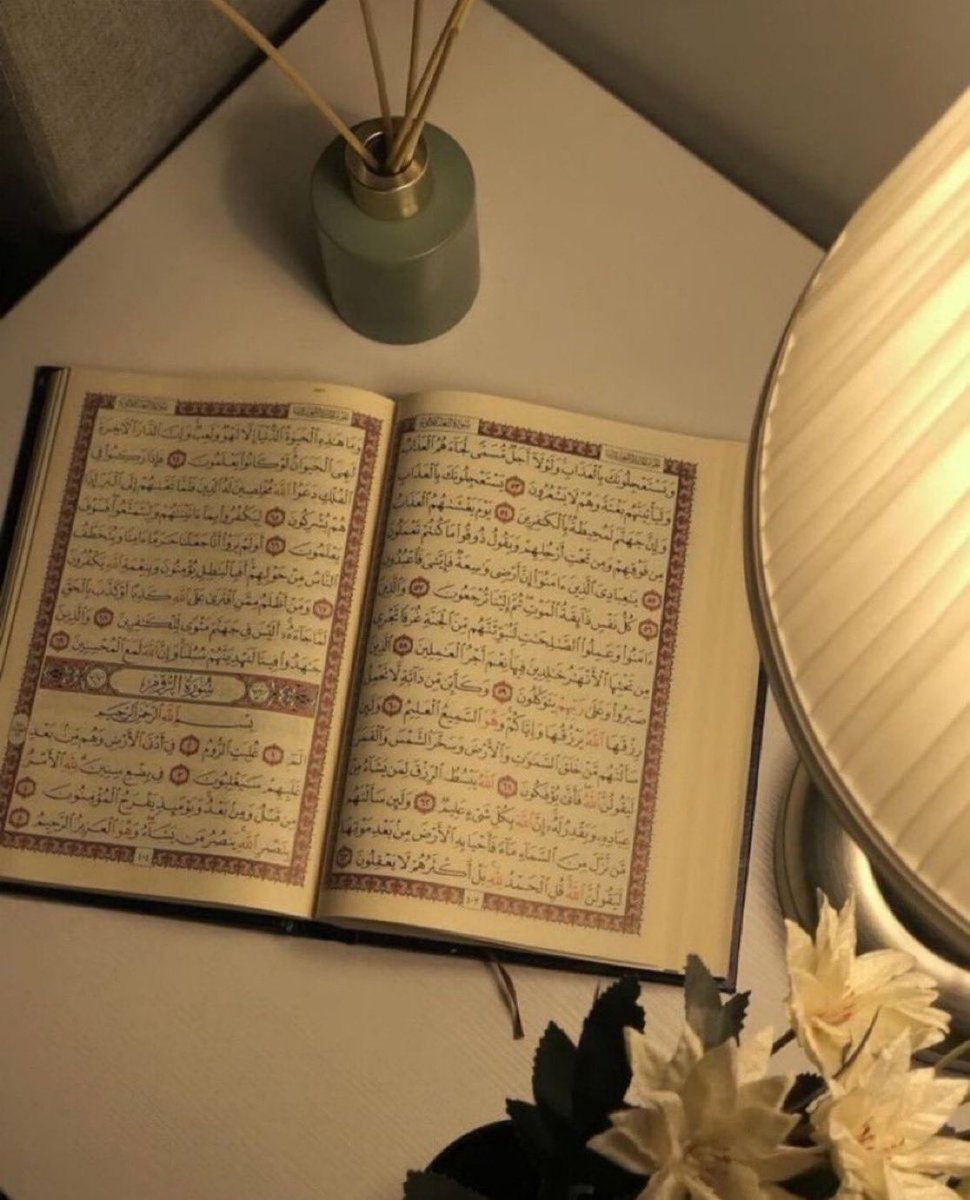 سُورَةُ العَنكَبُوتِ
وَيَسْتَعْجِلُونَكَ بِٱلْعَذَابِ وَلَوْلَآ أَجَلٌ مُّسَمًّى لَّجَآءَهُمُ ٱلْعَذَابُ
وَلَيَأْتِيَنَّهُم بَغْتَةً وَهُمْ لَا يَشْعُرُونَ ٥٣ يَسْتَعْجِلُونَكَ بِٱلْعَذَابِ
وَإِنَّ جَهَنَّمَ لَمُحِيطَةٌۢ بِٱلْكَٰفِرِينَ ٥٤ يَوْمَ يَغْشَىٰهُمُ ٱلْعَذَابُ
مِن فَوْقِهِمْ وَمِن تَحْتِ أَرْجُلِهِمْ وَيَقُولُ ذُوقُوا۟ مَا كُنتُمْ تَعْمَلُونَ
٥٥ يَٰعِبَادِىَ ٱلَّذِينَ ءَامَنُوٓا۟ إِنَّ أَرْضِى وَٰسِعَةٌ فَإِيَّٰىَ فَٱعْبُدُونِ
٥٦ كُلُّ نَفْسٍ ذَآئِقَةُ ٱلْمَوْتِ ثُمَّ إِلَيْنَا تُرْجَعُونَ ٥٧ وَٱلَّذِينَ
ءَامَنُوا۟ وَعَمِلُوا۟ ٱلصَّٰلِحَٰتِ لَنُبَوِّئَنَّهُم مِّنَ ٱلْجَنَّةِ غُرَفًا تَجْرِى
مِن تَحْتِهَا ٱلْأَنْهَٰرُ خَٰلِدِينَ فِيهَا نِعْمَ أَجْرُ ٱلْعَٰمِلِينَ ٥٨ ٱلَّذِينَ
صَبَرُوا۟ وَعَلَىٰ رَبِّهِمْ يَتَوَكَّلُونَ ٥٩ وَكَأَيِّن مِّن دَآبَّةٍ لَّا تَحْمِلُ
رِزْقَهَا ٱللَّهُ يَرْزُقُهَا وَإِيَّاكُمْ وَهُوَ ٱلسَّمِيعُ ٱلْعَلِيمُ ٦٠ وَلَئِن
سَأَلْتَهُم مَّنْ خَلَقَ ٱلسَّمَٰوَٰتِ وَٱلْأَرْضَ وَسَخَّرَ ٱلشَّمْسَ وَٱلْقَمَرَ
لَيَقُولُنَّ ٱللَّهُ فَأَنَّىٰ يُؤْفَكُونَ ٦١ ٱللَّهُ يَبْسُطُ ٱلرِّزْقَ لِمَن يَشَآءُ مِنْ
عِبَادِهِۦ وَيَقْدِرُ لَهُۥٓ إِنَّ ٱللَّهَ بِكُلِّ شَىْءٍ عَلِيمٌ ٦٢ وَلَئِن سَأَلْتَهُم
مَّن نَّزَّلَ مِنَ ٱلسَّمَآءِ مَآءً فَأَحْيَا بِهِ ٱلْأَرْضَ مِنۢ بَعْدِ مَوْتِهَا
لَيَقُولُنَّ ٱللَّهُ قُلِ ٱلْحَمْدُ لِلَّهِ بَلْ أَكْثَرُهُمْ لَا يَعْقِلُونَ ٦٣
٤٠٣
سُورَةُ العَنكَبُوتِ
وَمَا هَٰذِهِ ٱلْحَيَوٰةُ ٱلدُّنْيَآ إِلَّا لَهْوٌ وَلَعِبٌ وَإِنَّ ٱلدَّارَ ٱلْءَاخِرَةَ
لَهِىَ ٱلْحَيَوَانُ لَوْ كَانُوا۟ يَعْلَمُونَ ٦٤ فَإِذَا رَكِبُوا۟ فِى
ٱلْفُلْكِ دَعَوُا۟ ٱللَّهَ مُخْلِصِينَ لَهُ ٱلدِّينَ فَلَمَّا نَجَّىٰهُمْ إِلَى ٱلْبَرِّ إِذَا
هُمْ يُشْرِكُونَ ٦٥ لِيَكْفُرُوا۟ بِمَآ ءَاتَيْنَٰهُمْ وَلِيَتَمَتَّعُوا۟ فَسَوْفَ
يَعْلَمُونَ ٦٦ أَوَلَمْ يَرَوْا۟ أَنَّا جَعَلْنَا حَرَمًا ءَامِنًا وَيُتَخَطَّفُ
ٱلنَّاسُ مِنْ حَوْلِهِمْ أَفَبِٱلْبَٰطِلِ يُؤْمِنُونَ وَبِنِعْمَةِ ٱللَّهِ يَكْفُرُونَ
٦٧ وَمَنْ أَظْلَمُ مِمَّنِ ٱفْتَرَىٰ عَلَى ٱللَّهِ كَذِبًا أَوْ كَذَّبَ بِٱلْحَقِّ
لَمَّا جَآءَهُۥٓ أَلَيْسَ فِى جَهَنَّمَ مَثْوًى لِّلْكَٰفِرِينَ ٦٨ وَٱلَّذِينَ
جَٰهَدُوا۟ فِينَا لَنَهْدِيَنَّهُمْ سُبُلَنَا وَإِنَّ ٱللَّهَ لَمَعَ ٱلْمُحْسِنِينَ ٦٩
سُورَةُ الرُّومِ
بِسْمِ ٱللَّهِ ٱلرَّحْمَٰنِ ٱلرَّحِيمِ
الٓمٓ ١ غُلِبَتِ ٱلرُّومُ ٢ فِىٓ أَدْنَى ٱلْأَرْضِ وَهُم مِّنۢ بَعْدِ
غَلَبِهِمْ سَيَغْلِبُونَ ٣ فِى بِضْعِ سِنِينَ لِلَّهِ ٱلْأَمْرُ
مِن قَبْلُ وَمِنۢ بَعْدُ وَيَوْمَئِذٍ يَفْرَحُ ٱلْمُؤْمِنُونَ ٤
بِنَصْرِ ٱللَّهِ يَنصُرُ مَن يَشَآءُ وَهُوَ ٱلْعَزِيزُ ٱلرَّحِيمُ ٥
٤٠٤